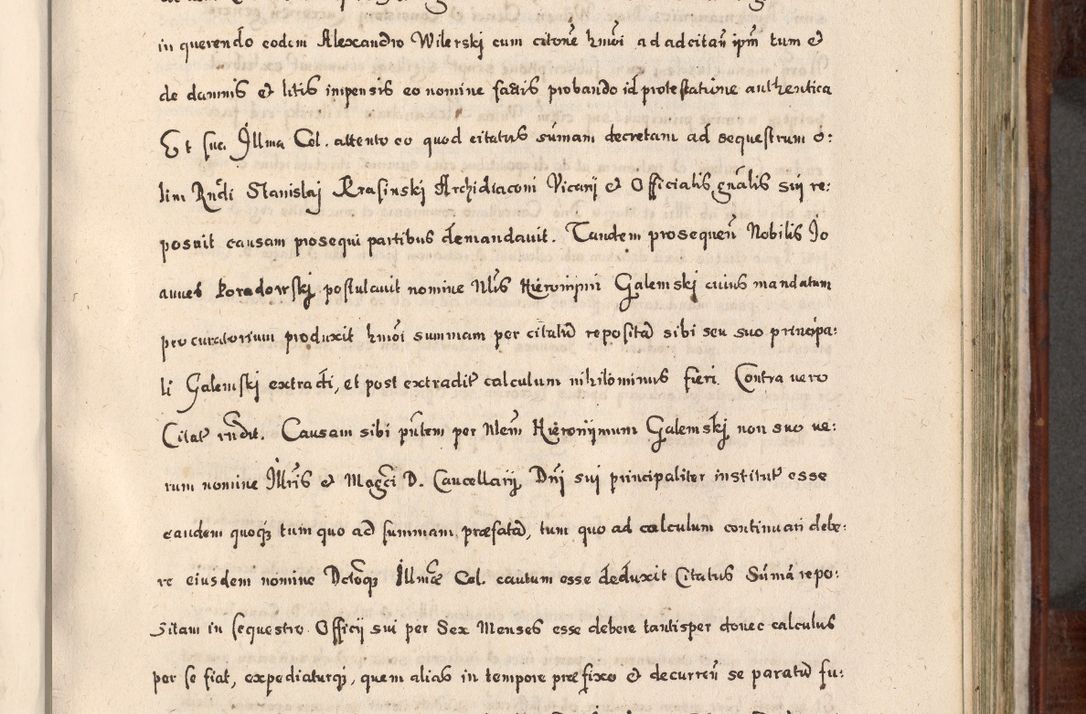 in querendo eodem Alexandro Wilerskj cum citone hmoi ad adcitan ipm tum et
de damnis et litis inpensis eo nomine factis probando id protestatione authentica
Et sua Jllma Cel. attento eo quod citatus sumam decretam ad sequestrum o:
lim Rndi Stanislaj Krasinskj Archidiaconi Vicarij et Officialis gnalis sui re:
posuit causam prosequi partibus demandavit. Tandem prosequen Nobilis Jo
annes Koradowskj postulavit nomine Nlis Hieronimi Galemskj cuius mandatum
procuratorium produxit hmoi summam per citatu reposita sibi seu suo principa:
li Galemskj extradi, et post extradit calculum nihilominus fieri. Contra vero
Citat rndit. Causam sibi pntem per Nlem Hieronymum Galemskj non suo ve:
rum nomine Jllris et Magci D. Cancellarij Dni sui principaliter institut esse
eandem quoq tum quo ad summam præfata, tum quo ad calculum continuari debe:
re eiusdem nomine Dctoq Jllmæ Cel. cautum esse deduxit Citatus Sumá repo:
sitam in sequestro Officij sui per Sex Menses esse debere tantisper donec calculus
per se fiat, expediaturq, quem alias in tempore præfixo et decurren se paratu fu: